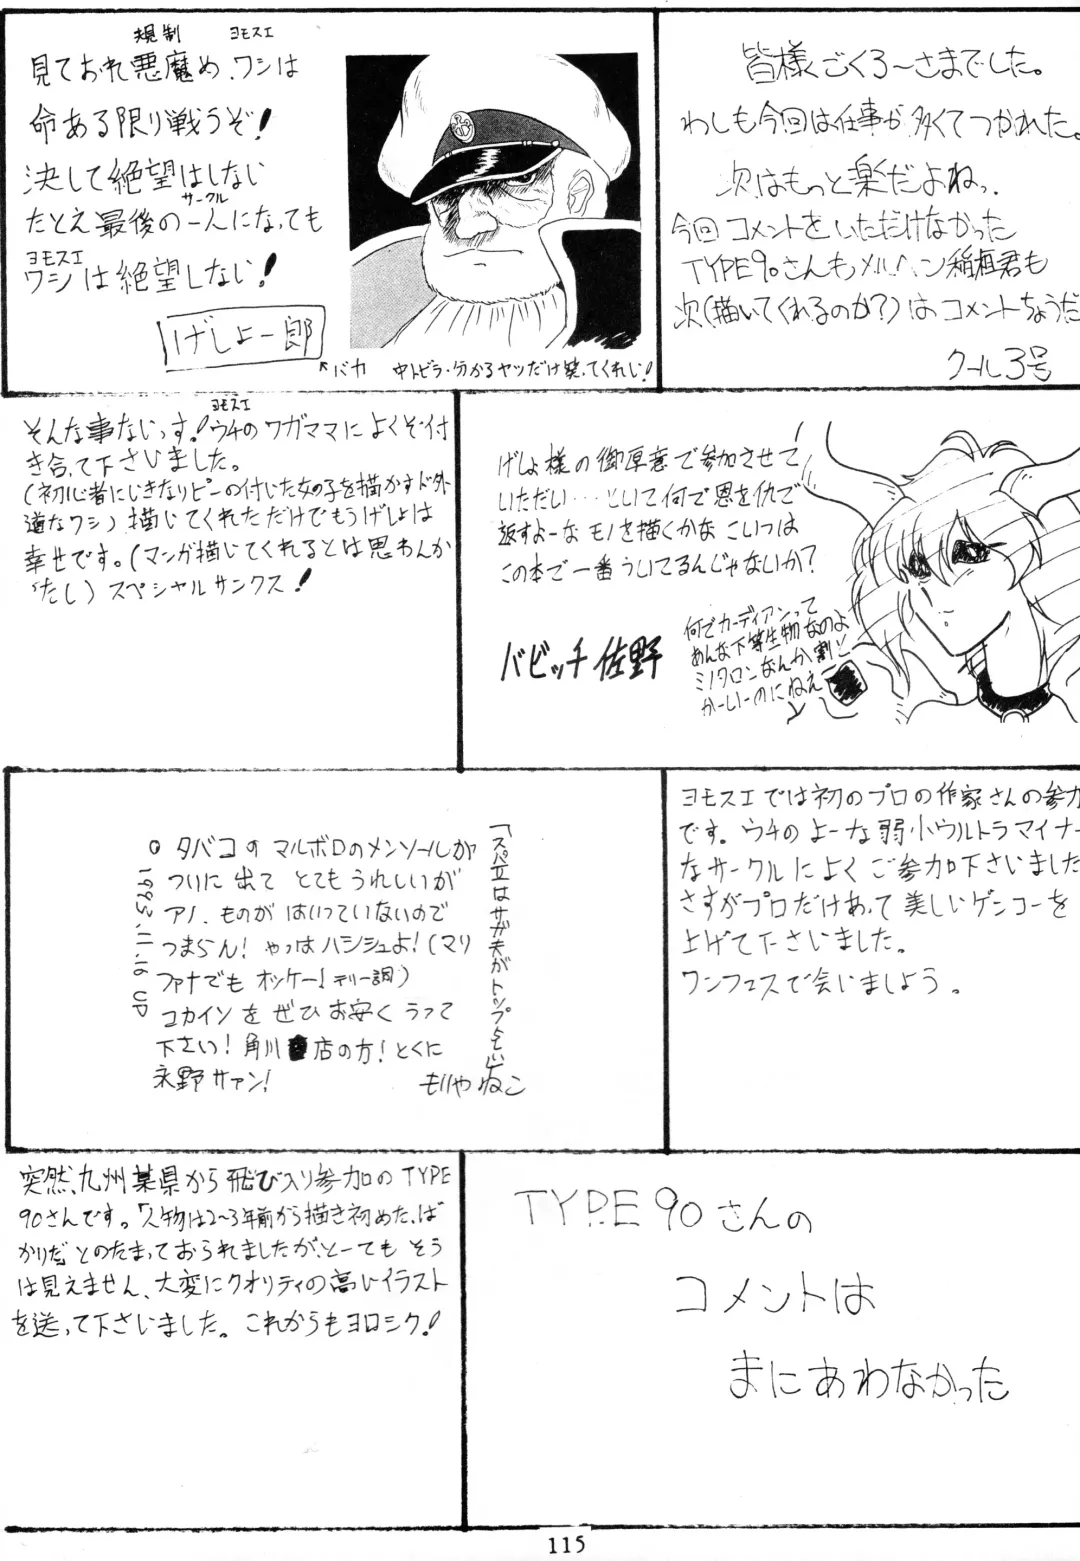 規制 ヨモスエ
見ておれ悪魔め、ワシは
命ある限り戦うぞ!
決して絶望はしない
サークル
たとえ最後の一人になっても
ヨモスエ
ワシは絶望しない!
げしょ一郎
↖バカ 中トビラ・分かるヤツだけ笑ってくれい!
皆様ごくろ〜さまでした。
わしも今回は仕事が多くてつかれた。
次はもっと楽だよねっ.
今回コメントをいただけなかった
TYPE90さんもメルヘン稲垣君も
次(描いてくれるのか?)はコメントちょうだ
クール3号
ヨモスエ
そんな事ないっす!ウチのワガママによくぞ付
き合って下さいました。
(初心者にいきなりピーの付いた女の子を描かすド外
道なワシ)描いてくれただけでもうげしょは
幸せです。(マンガ描いてくれるとは思わんか
ったし)スペシャルサンクス!
げしょ様の御厚意で参加させて
いただい・・・といて何で恩を仇で
返すよーなモノを描くかな こいつは
この本で一番ういてるんじゃないか?
バビッチ佐野
何でガーディアンって
あんな下等生物なのよ
ミノタロンなんか割と
かーいーのにねえ
「スパエはサガ夫がトップでいい」
○タバコのマルボロのメンソールが
ついに出てとてもうれしいが
アノ、ものがはいっていないので
つまらん!やっぱハシシュよ!(マリ
ファナでもオッケー!テリー調)
コカインをぜひお安くうって
下さい!角川 店の方!とくに
永野サァン!
もりやねこ
1993.11.16 UP
ヨモスエでは初のプロの作家さんの参加
です。ウチのよーな弱小ウルトラマイナー
なサークルによくご参加下さいました
さすがプロだけあって美しいゲンコーを
上げて下さいました。
ワンフェスで会いましょう。
突然、九州某県から飛び入り参加のTYPE
90さんです。「人物は2〜3年前から描き初めたば
かりだ」とのたまっておられましたが、とーてもそう
は見えません、大変にクオリティの高いイラスト
を送って下さいました。これからもヨロシク!
TYPE90さんの
コメントは
まにあわなかった
115